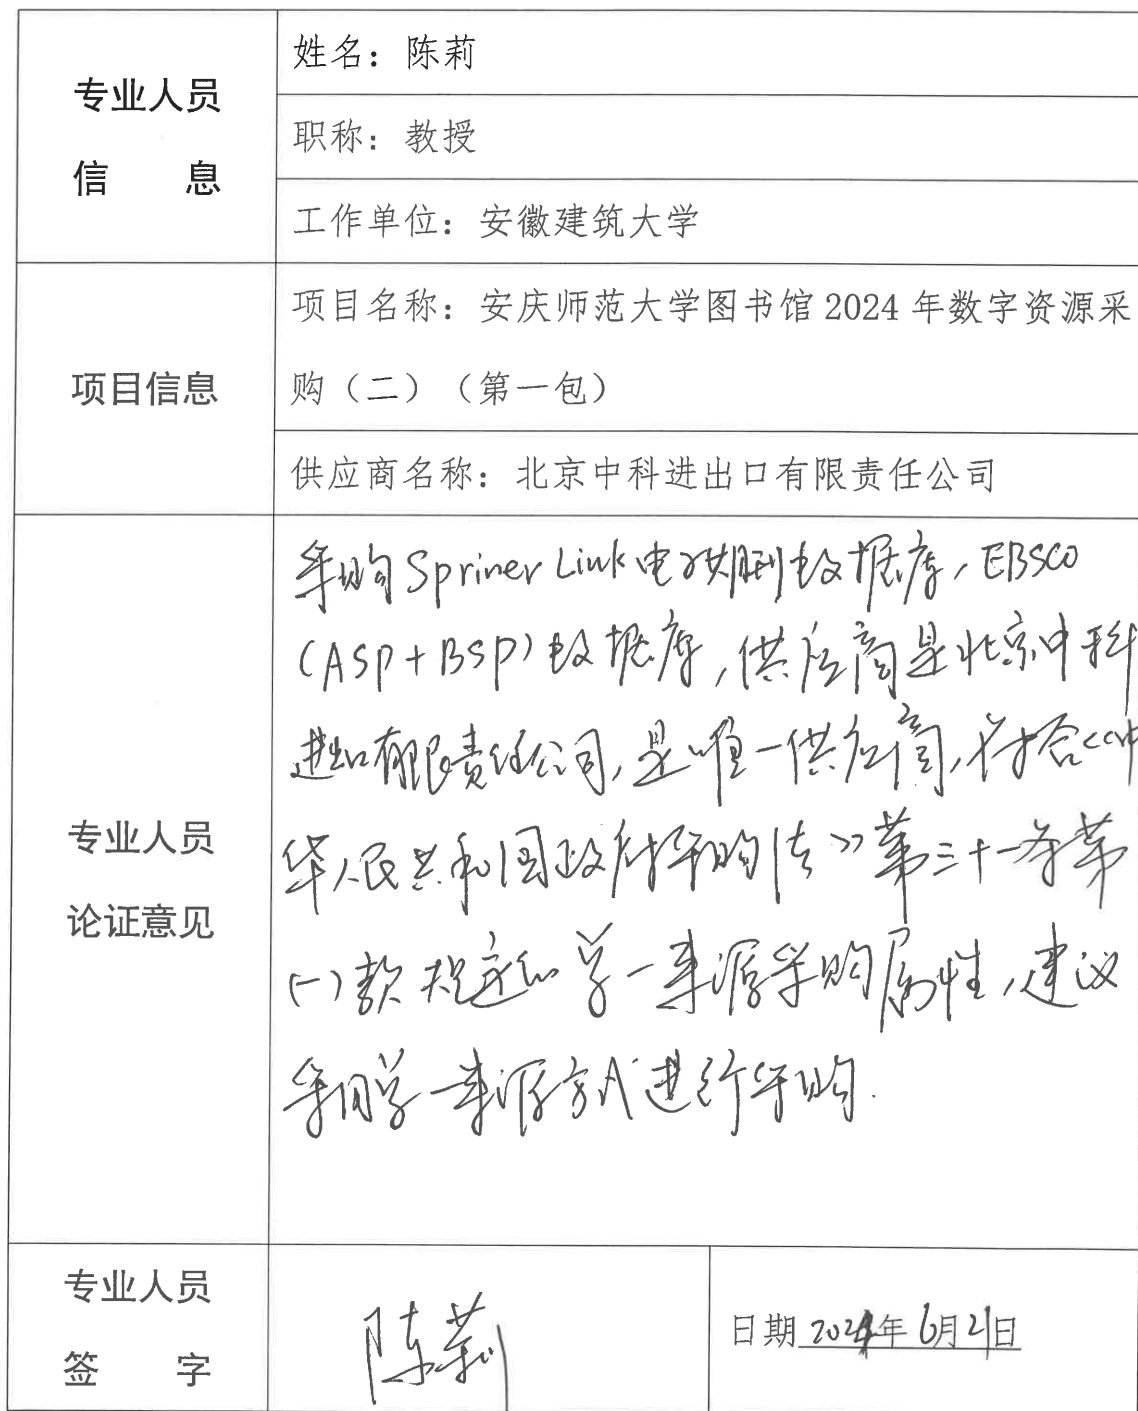 专业人员
信 息
姓名：陈莉
职称：教授
工作单位：安徽建筑大学
项目信息
项目名称：安庆师范大学图书馆 2024 年数字资源采
购（二）（第一包）
供应商名称：北京中科进出口有限责任公司
专业人员
论证意见
采购Spriner Link电子期刊数据库，EBSCO
(ASP+BSP)数据库，供应商是北京中科
进出口有限责任公司，是唯一供应商，符合《中
华人民共和国政府采购法》第三十一条第
(一)款规定的单一来源采购属性，建议
采用单一来源方式进行采购.
专业人员
签 字
陈莉
日期 2024年 6月21日